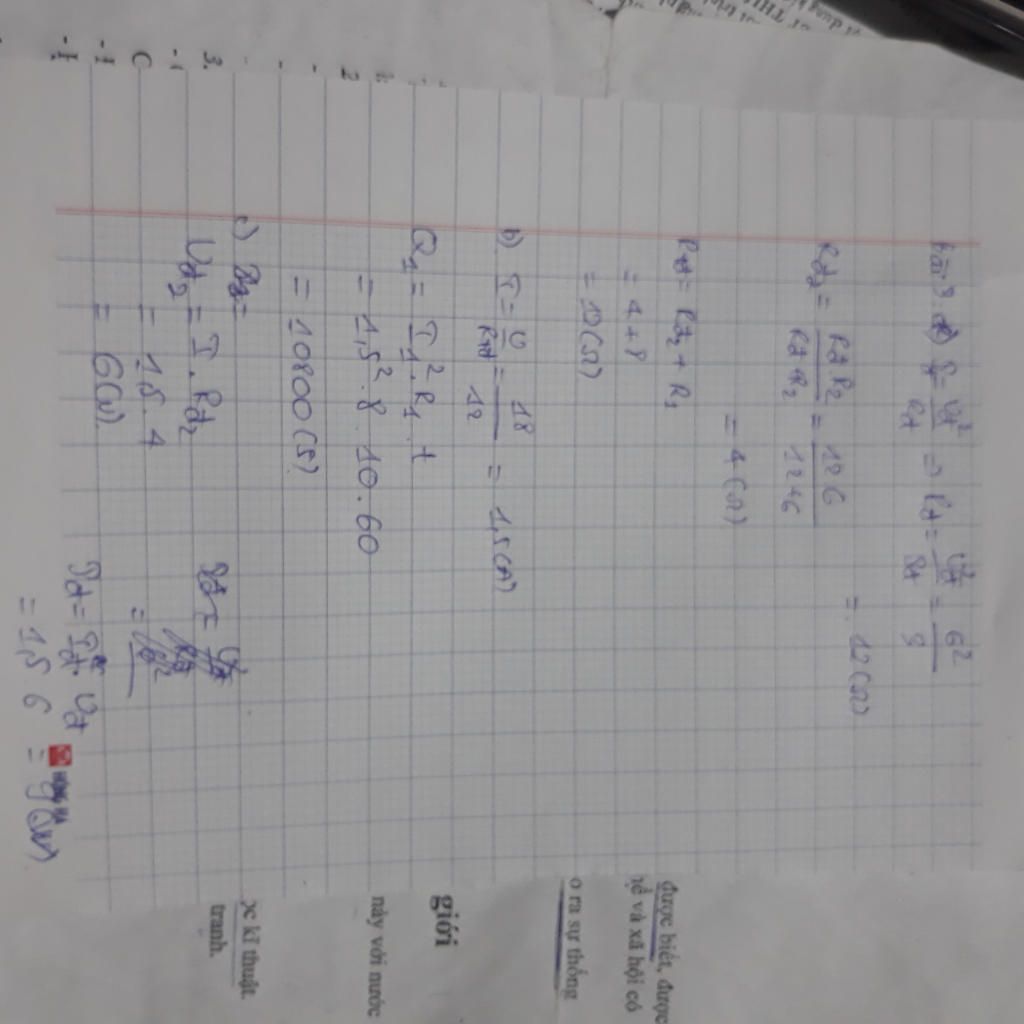 Bài 3. a) P = Uđ² / Rđ ⇒ Rđ = Uđ² / Pđ = 6² / 3
= 12 (Ω)
Rđ2 = Rđ.R2 / Rđ+R2 = 12.6 / 12+6
= 4 (Ω)
Rtđ = Rđ2 + R1
= 4 + 8
= 12 (Ω)
b) I = U / Rtđ = 18 / 12 = 1,5 (A)
Q1 = I1².R1.t
= 1,5².8.10.60
= 10800 (J)
c)
Uđ2 = I.Rđ2
= 1,5.4
= 6 (V)
Pđ = Iđ.Uđ
= 1,5 6 = 9 (W)
HỒNG HÀ
được biết, được
hể và xã hội có
o ra sự thống
giới
này với nước
ọc kĩ thuật.
tranh.
3.
C
2